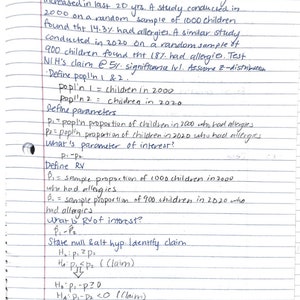 increased in last 20 yrs. A study conducted in
2000 on a random sample of 1000 children
found tht 14.3% had allergies. A similar study
conducted in 2020 on a random sample of
900 children found tht 18% had allergies. Test
NIH's claim @ 5% significance lvl. Assume z-distribution
Define popl'n 1 & 2.
popl'n 1 = children in 2000
popl'n 2 = children in 2020
Define parameters
p₁ = popl'n proportion of children in 2000 who had allergies
p₂ = popl'n proportion of children in 2020 who had allergies
What's parameter of interest?
p₁-p₂
Define RV
p̂₁ = sample proportion of 1000 children in 2000
who had allergies
p̂₂ = sample proportion of 900 children in 2020 who
had allergies
What is RV of interest?
p̂₁-p̂₂
State null & alt hyp. Identify claim
H₀: p₁ ≥ p₂
Hₐ: p₁ < p₂ (claim)
H₀: p₁-p₂ ≥ 0
Hₐ: p₁-p₂ < 0 (claim)